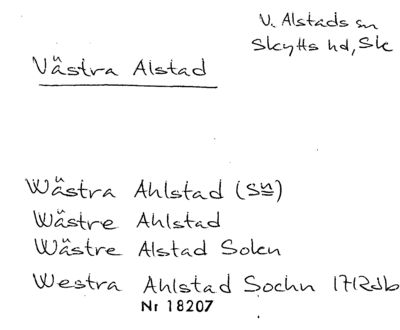 V. Alstads sn
Skytts hd, Sk
Västra Alstad
Wästra Ahlstad (Sn)
Wästre Ahlstad
Wästre Alstad Sokn
Westra Ahlstad Sochn 1712db
Nr 18207